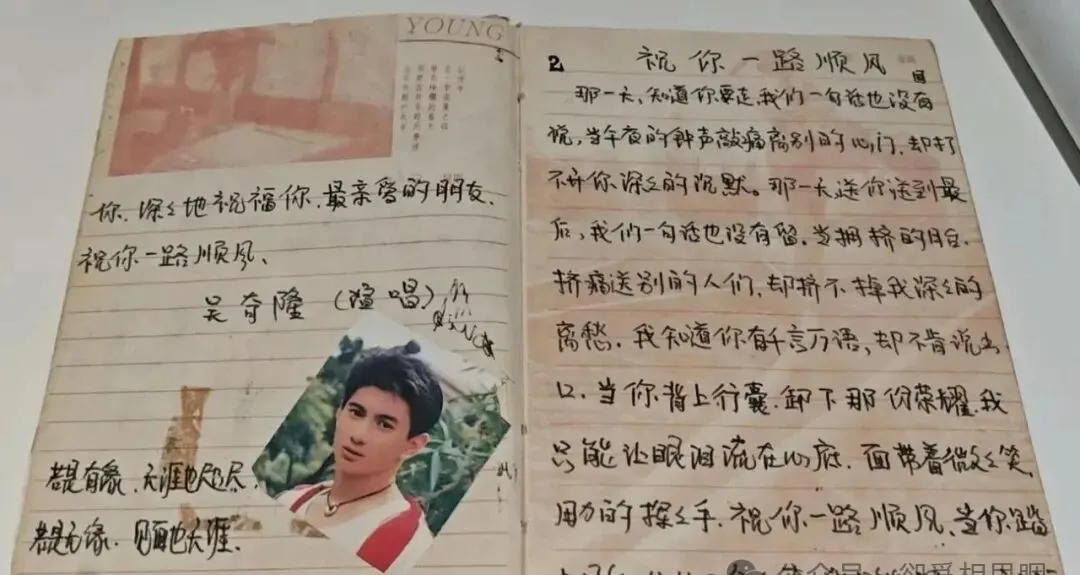 YOUNG
你、深々地祝福你、最亲爱的朋友、
祝你一路顺风、
吴奇隆（演唱）
若是有缘、天涯也咫尺、
若是无缘、见面也天涯、
2 祝你一路顺风
那一天、知道你要走、我们一句话也没有
说、当午夜的钟声敲痛离别的心门、却打
不开你深々的沉默。那一天送你送到最
后、我们一句话也没有留、当拥挤的月台、
挤痛送别的人们、却挤不掉我深々的
离愁、我知道你有千言万语、却不肯说出
口、当你背上行囊、卸下那份荣耀、我
只能让眼泪流在心底、面带着微々笑、
用力的挥々手、祝你一路顺风、当你踏